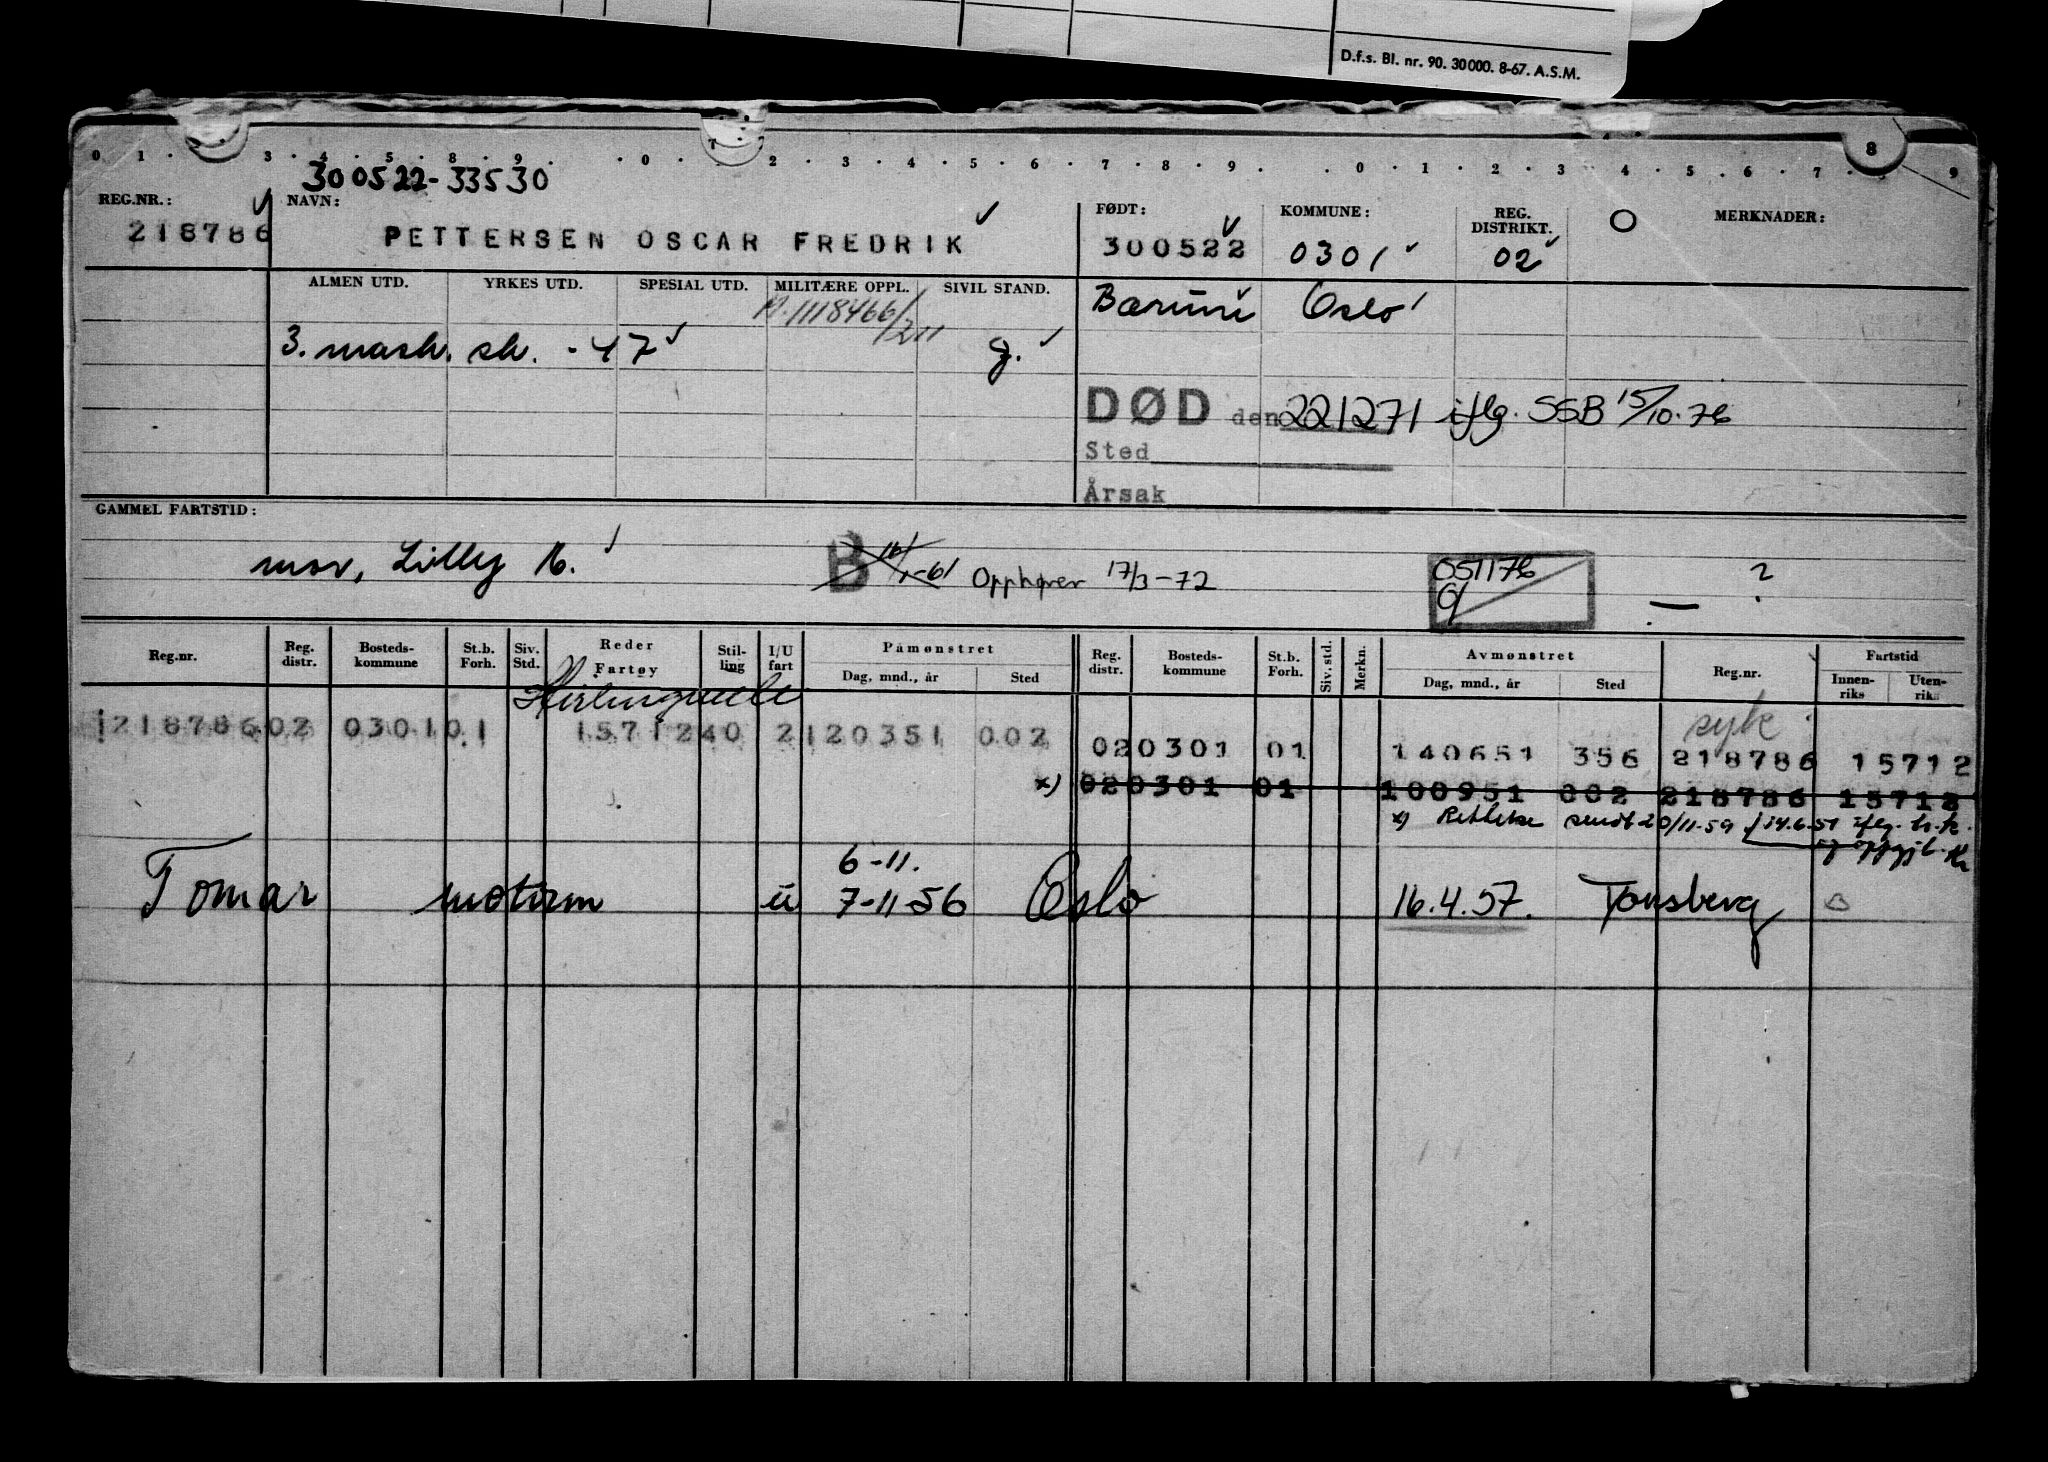 D.f.s. Bl. nr. 90. 30000. 8-67. A.S.M.
0 1 . 3 . 4 . 5 . 8 . 9 . . 0 . 1 2 . 3 . 4 . 5 . 6 . 7 . 8 . 9 . . 0 . 1 . 2 . 3 4 . 5 . 6 . 7 . 8 9
300522-33530
REG.NR.: NAVN: FØDT: KOMMUNE: REG. DISTRIKT. O MERKNADER:
218786 PETTERSEN OSCAR FREDRIK 300522 0301 02
ALMEN UTD. YRKES UTD. SPESIAL UTD. MILITÆRE OPPL. SIVIL STAND. Bærum Oslo
1118466/211
3. mask. sk. - 47 g.
DØD den 221271 iflg. SSB 15/10.76
Sted
Årsak
GAMMEL FARTSTID:
mor, Lilly M. B 16/1-61 Opphører 17/3-72 051176 — ?
Reg.nr. Reg. distr. Bosteds-kommune St.b. Forh. Siv. Std. Reder Fartøy Stil-ling I/U fart Påmønstret Dag, mnd., år Sted Reg. distr. Bosteds-kommune St.b. Forh. Siv. std. Merkn. Avmønstret Dag, mnd., år Sted Reg.nr. Fartstid Innen-riks Uten-riks
syk
218786 02 0301 01 1571240 2 120351 002 020301 01 140651 356 218786 15712
x) 020301 01 100951 002 218786 15712
x) Rettelse sendt 20/11.59 f/14.6.51 iflg. h.k.
6-11.
Tomar motorm ü 7-11-56 Oslo 16.4.57. Tønsberg